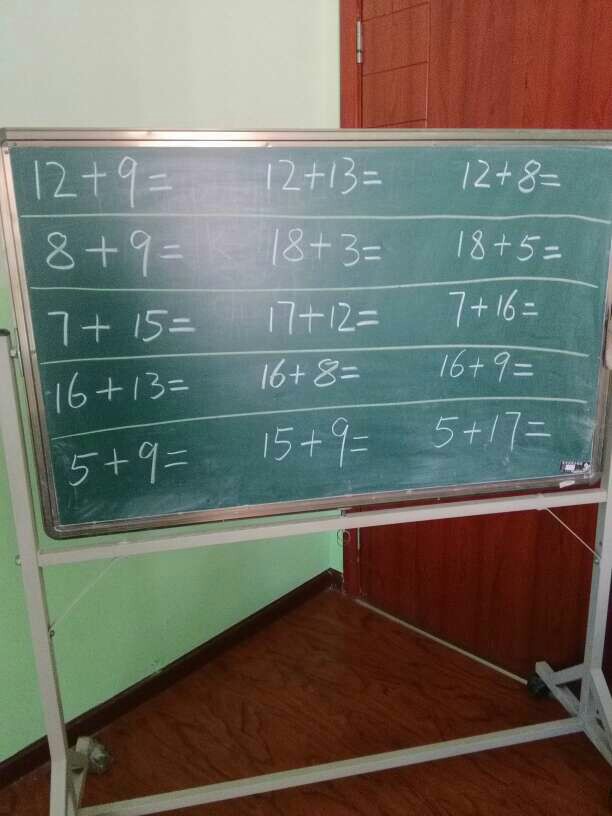 12+9= 12+13= 12+8=
8+9= 18+3= 18+5=
7+15= 17+12= 7+16=
16+13= 16+8= 16+9=
5+9= 15+9= 5+17=